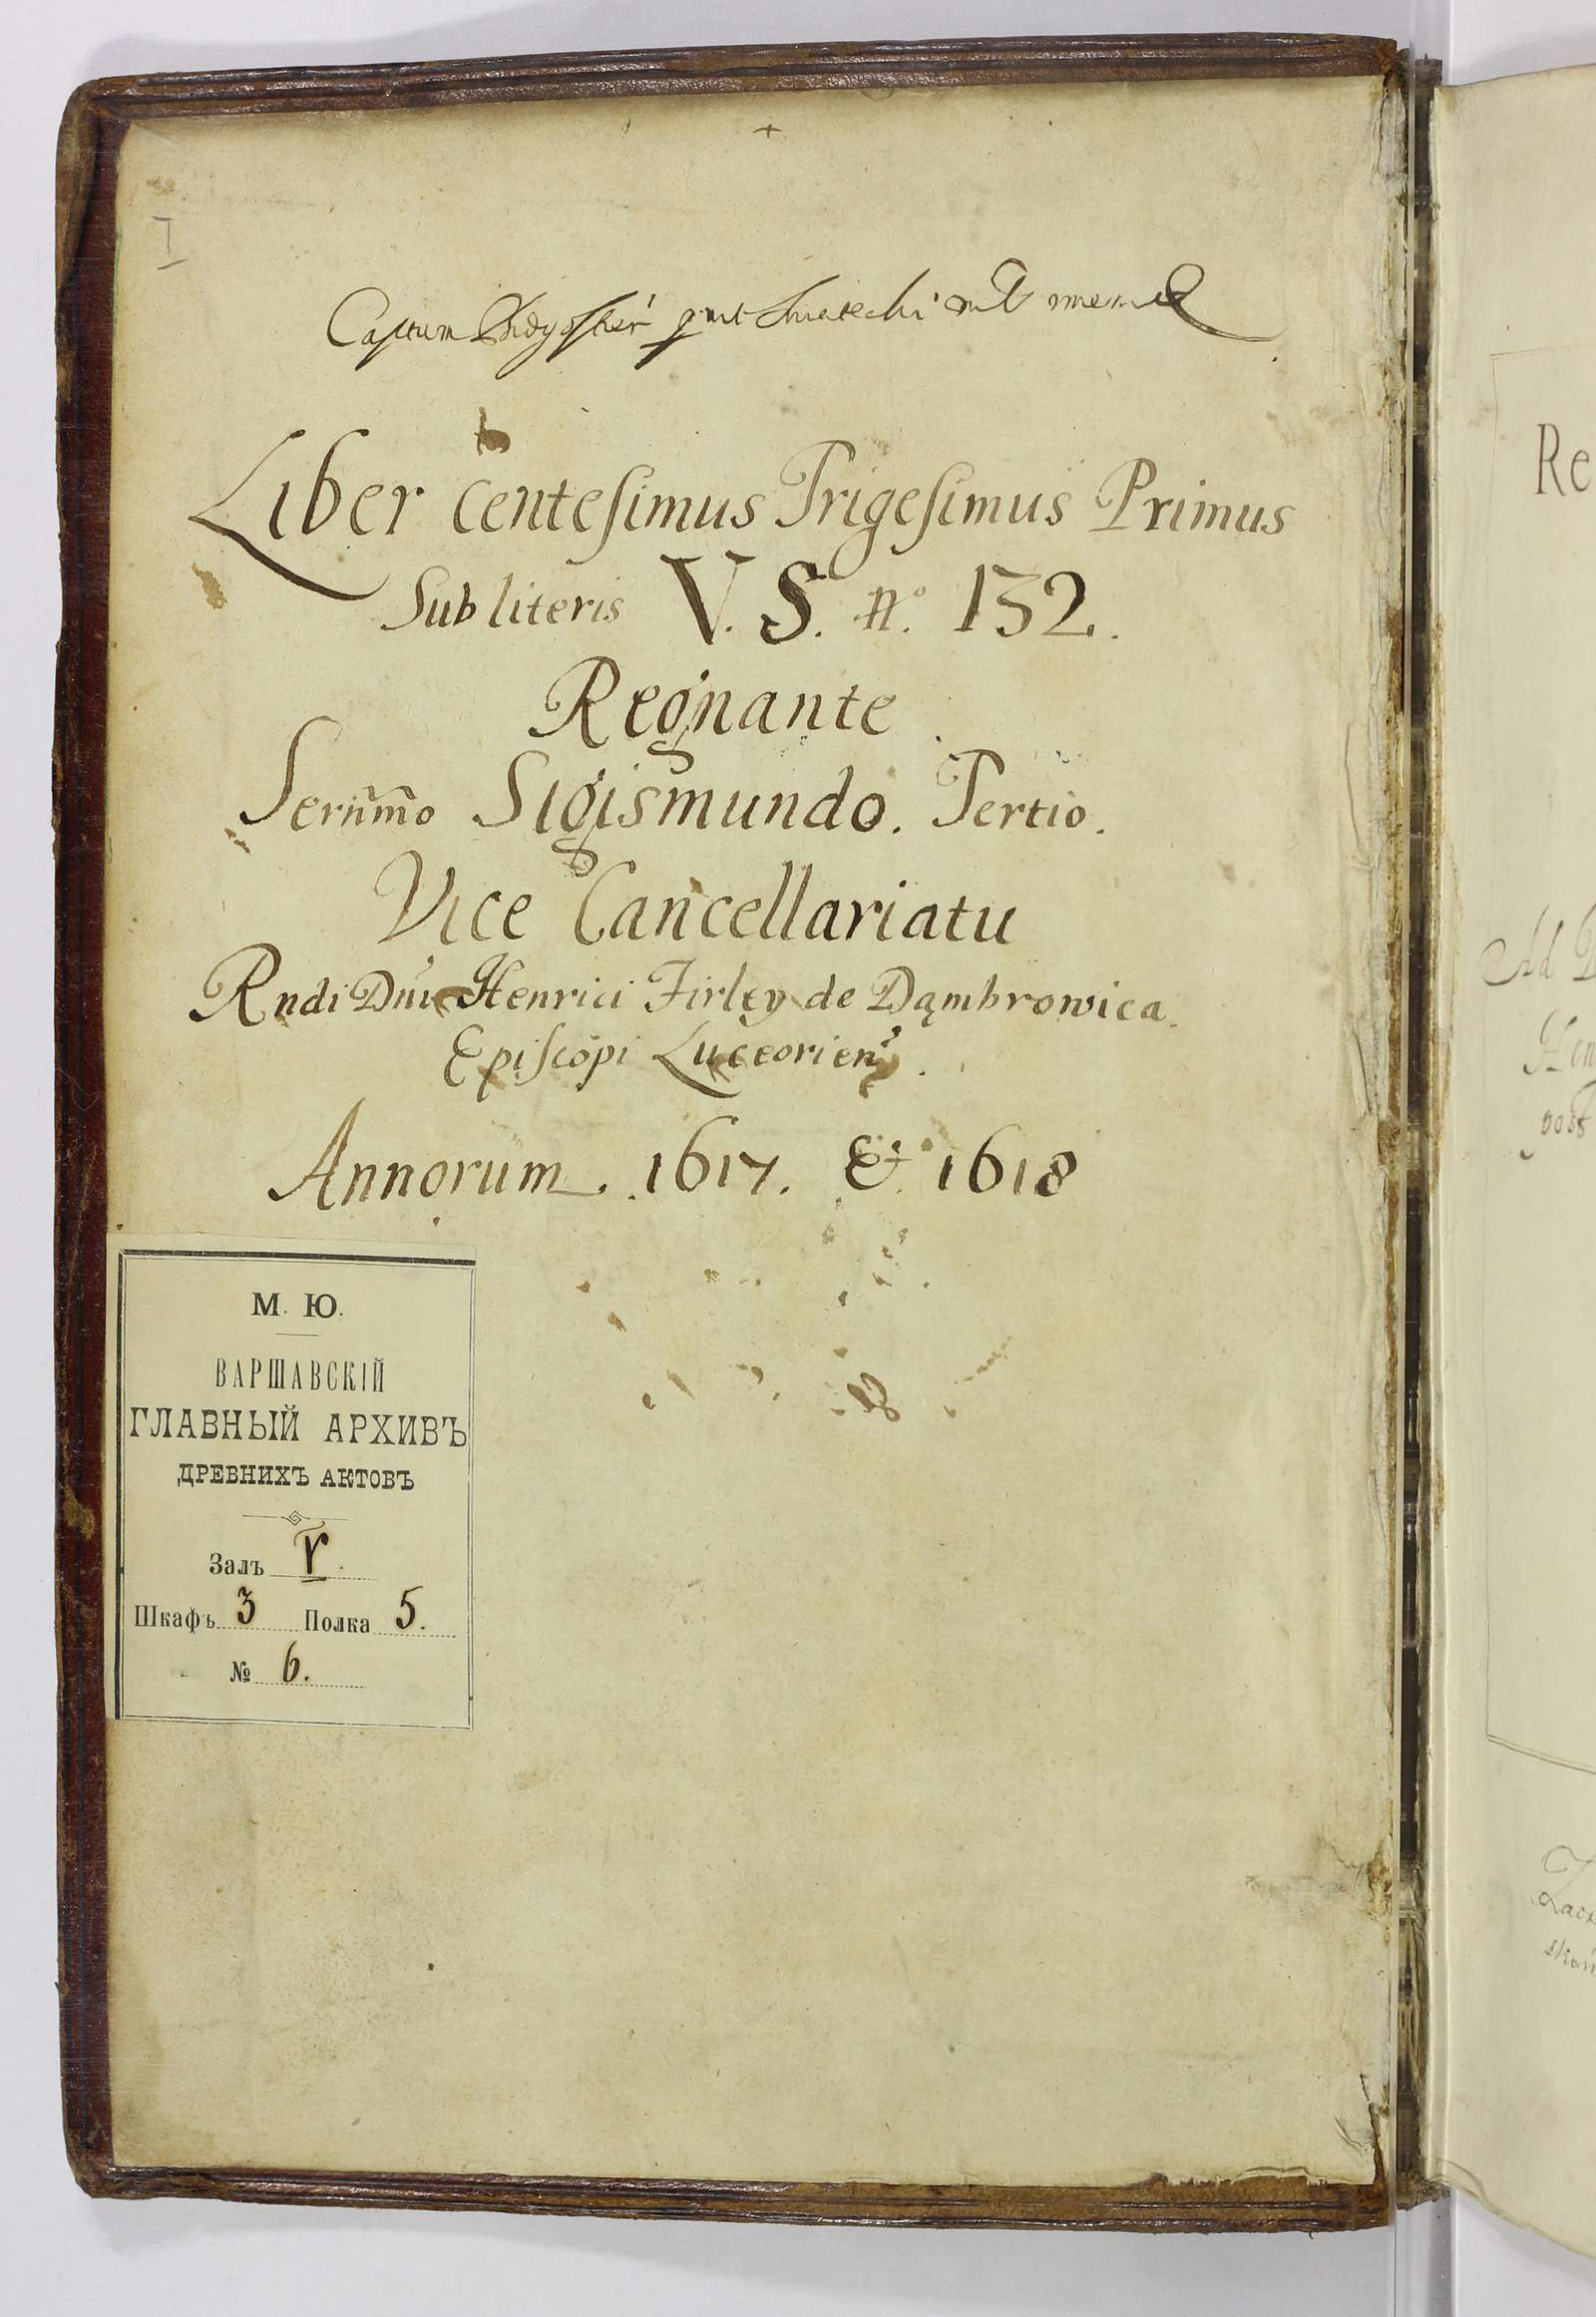 I
Castrum
Liber Centesimus Trigesimus Primus
Sub literis V. S. n.° 132.
Regnante
Serñmo Sigismundo. Tertio.
Vice Cancellariatu
Rndi Dni Henrici Firley de Dąmbrowica.
Episcopi Luceorien.
Annorum. 1617. Et 1618
М. Ю.
ВАРШАВСКІЙ
ГЛАВНЫЙ АРХИВЪ
ДРЕВНИХЪ АКТОВЪ
Залъ V.
Шкафъ 3 Полка 5.
№ 6.
Re
Ad
Hen
post